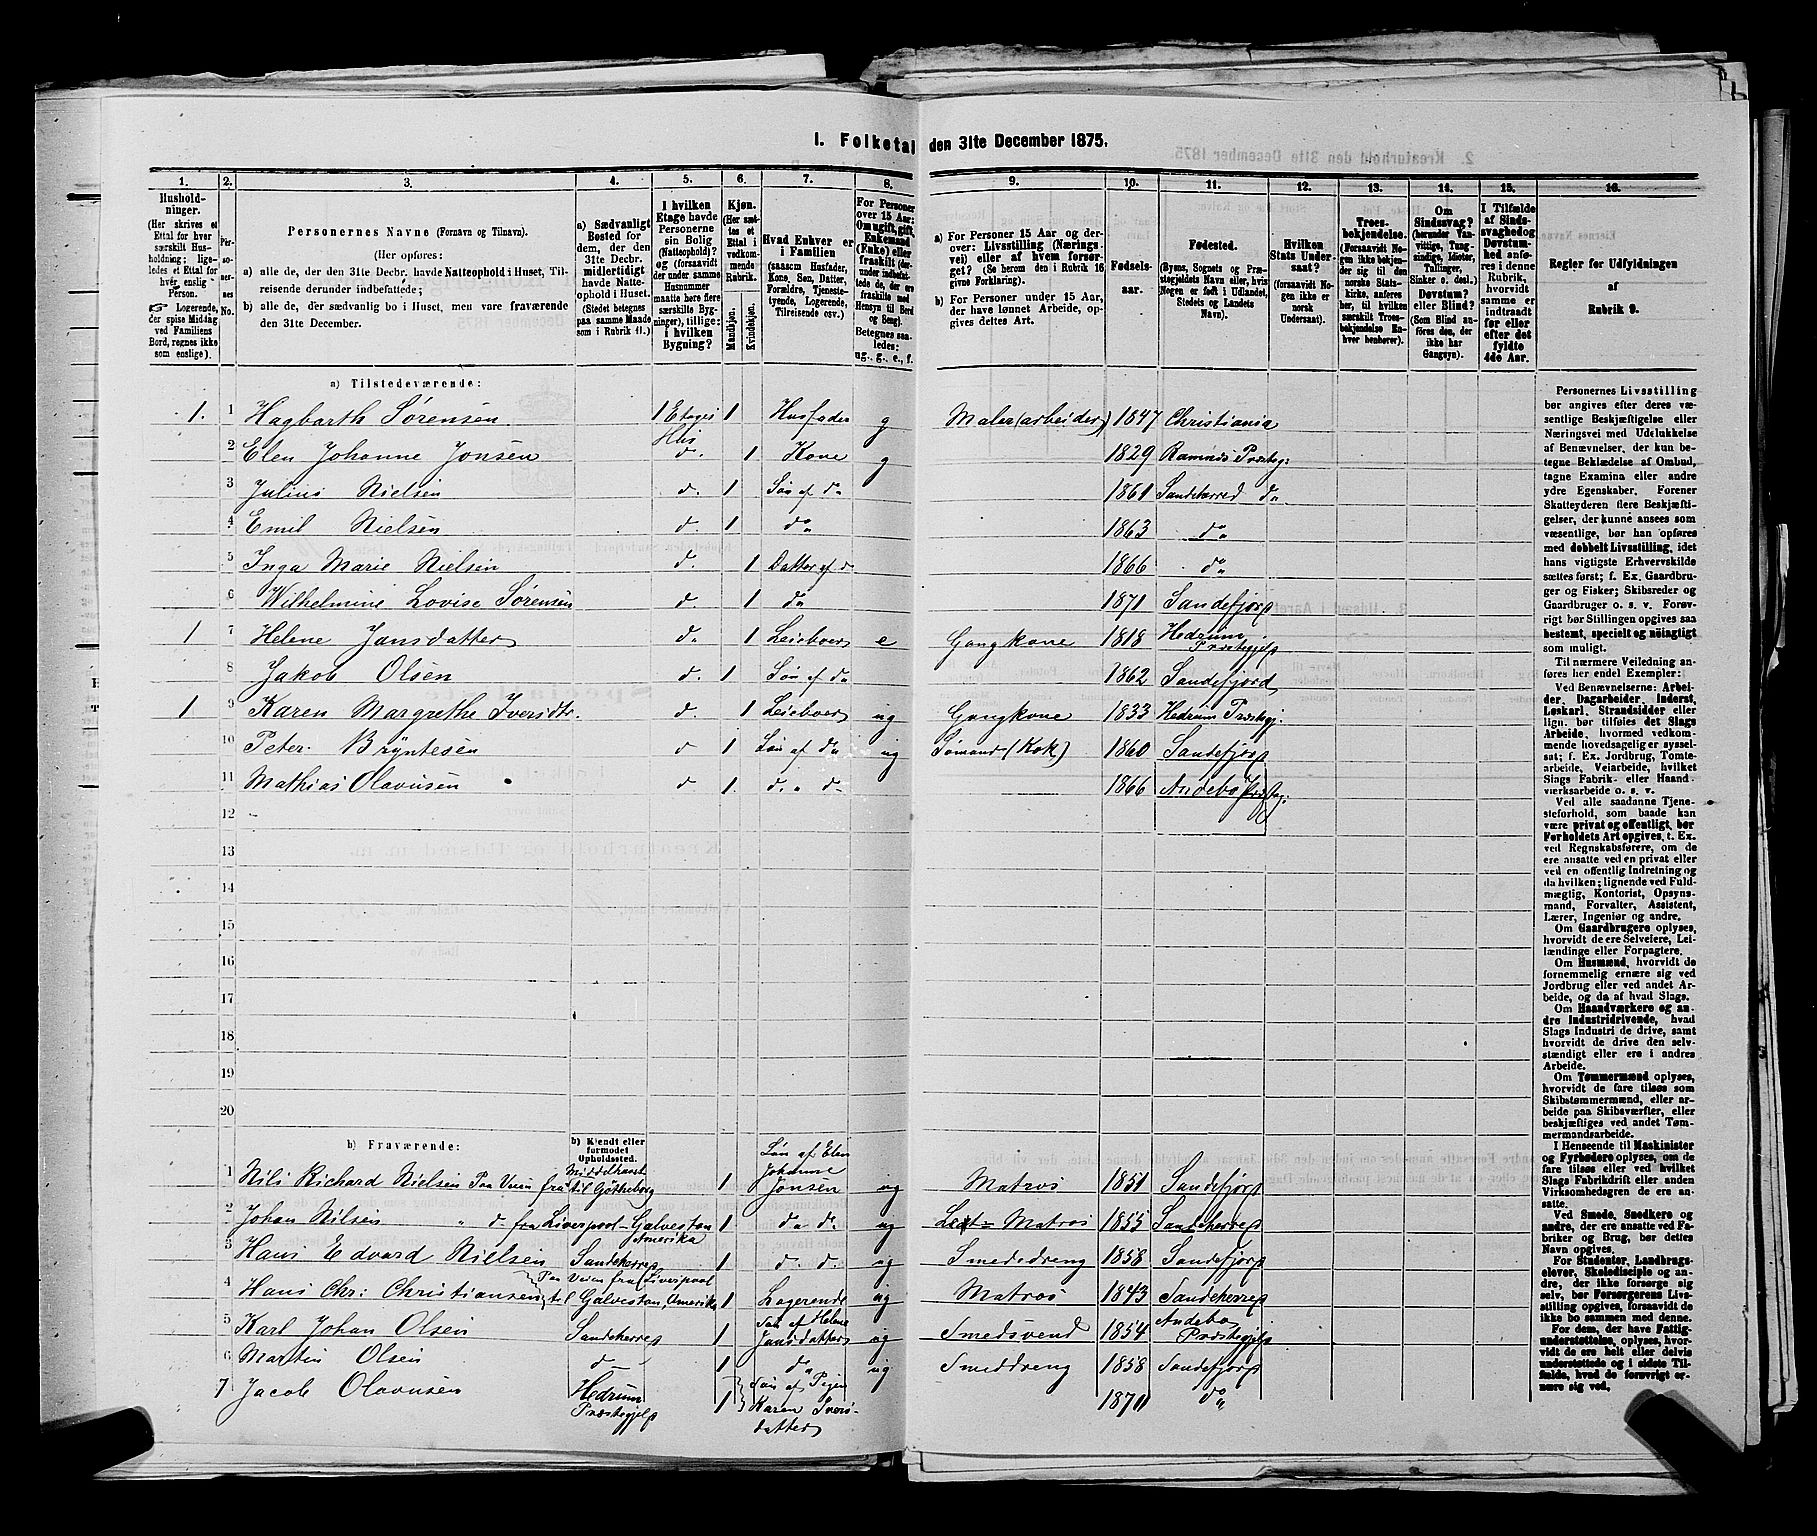 I. Folketal den 31te December 1875.
1. 2. 3. 4. 5. 6. 7. 8. 9. 10. 11. 12. 13. 14. 15. 16.
Husholdninger. (Her skrives et Ettal for hver særskilt Husholdning; ligeledes et Ettal for hver enslig Person. Logerende, der spise Middag ved Familiens Bord, regnes ikke som enslige).
Personernes No.
Personernes Navne (Fornavn og Tilnavn).
(Her opføres:
a) alle de, der den 31te Decbr. havde Natteophold i Huset, Tilreisende derunder indbefattede;
b) alle de, der sædvanlig bo i Huset, men vare fraværende den 31te December.
a) Sædvanligt Bosted for dem, der den 31te Decbr. midlertidigt havde Natteophold i Huset. (Stedet betegnes paa samme Maade som i Rubrik 11.)
I hvilken Etage havde Personerne sin Bolig (Natteophold)? og (forsaavidt der under samme Husnummer maatte høre flere særskilte Bygninger), tillige: i hvilken Bygning?
Kjøn. (Her sættes et Ettal i vedkommende Rubrik.
Mandkjøn.
Kvindekjøn.
Hvad Enhver er i Familien (saasom Husfader, Kone, Søn, Datter, Forældre, Tjenestetyende, Logerende, Tilreisende osv.)
For Personer over 15 Aar: Om ugift, gift, Enkemand (Enke) eller fraskilt
Betegnes saaledes: ug., g., e., f.
a) For Personer 15 Aar og derover: Livsstilling (Næringsvei) eller af hvem forsørget? (Se herom den i Rubrik 16 givne Forklaring).
b) For Personer under 15 Aar, der have lønnet Arbeide, opgives dettes Art.
Fødselsaar.
Fødested. (Byens, Sognets og Præstegjeldets Navn eller, hvis Nogen er født i Udlandet, Stedets og Landets Navn).
Hvilken Stats Undersaat? (forsaavidt Nogen ikke er norsk Undersaat).
Troesbekjendelse. (Forsaavidt Nogen ikke bekjender sig til den norske Statskirke, anføres her, til hvilken særskilt Troesbekjendelse Enhver henhører).
Om Sindssvag? (herunder Vanvittige, Tungsindige, Idioter, Tullinger, Sinker o. desl.) Døvstum? eller Blind? (Som Blind anføres den, der ikke har Gangsyn).
I Tilfælde af Sindssvaghed og Døvstumhed anføres i denne Rubrik, hvorvidt samme er indtraadt før eller efter det fyldte 4de Aar.
Regler for Udfyldningen af Rubrik 9.
a) Tilstedeværende:
1. 1 Hagbarth Sørensen 1 Etages Hus 1 Husfader g Maler (arbeider) 1847 Christiania
2 Elen Johanne Jonsen d. 1 Kone g 1829 Ramnæs Præsteg:
3 Julius Nielsen d. 1 Søn af do 1861 Sandeherred do
4 Emil Nielsen d. 1 do 1863 do
5 Inga Marie Nielsen d. 1 Datter af d 1866 do
6 Wilhelmine Lovise Sørensen d. 1 do 1871 Sandefjord
1 7 Helene Jansdatter d. 1 Leieboer e Gangkone 1818 Hedrum Præstegjeld
8 Jakob Olsen d. 1 Søn af do 1862 Sandefjord
1 9 Karen Margrethe Iversdtr. d. 1 Leieboer ug Gangkone 1833 Hedrum Præstegj.
10 Peter Bryntesen d 1 Søn af do ug Sømand (Kok) 1860 Sandefjord
11 Mathias Olavusen d 1 d. d. 1866 Andebo Præsteg:
12
13
14
15
16
17
18
19
20
b) Fraværende:
b) Kjendt eller formodet Opholdssted.
1 Nils Richard Nielsen Paa Veien fra Middelhavet til Gøtheborg 1 Søn af Elen Johanne Jonsen ug Matros 1851 Sandefjord
2 Johan Nilsen " d fra Liverpool - Galveston Amerika 1 do d. ug Let- Matros 1855 Sandeherred
3 Hans Edvard Nielsen Sandeherred 1 d. d. ug Smededreng 1858 Sandefjord
4 Hans Chr: Christiansen Paa Veien fra Liverpool til Galveston, Amerika 1 Logerende ug Matros 1843 Sandeherred
5 Karl Johan Olsen Sandeherred 1 Søn af Helene Jansdatter ug Smedsvend 1854 Andebo Præstegjeld
6 Martin Olsen d 1 do ug Smeddreng 1858 Sandefjord
7 Jacob Olavusen Hedrum Præstegjeld 1 Søn af Pigen Karen Iversdatter 1870 do
Personernes Livsstilling
bør angives efter deres væsentlige Beskjæftigelse eller
Næringsvei med Udelukkelse
af Benævnelser, der kun betegne Beklædelse af Ombud,
tagne Examina eller andre
ydre Egenskaber. Forener
Skatteyderen flere Beskjæftigelser, der kunne ansees som
væsentlige, bør han opføres
med dobbelt Livsstilling, idet
hans vigtigste Erhvervskilde
sættes først; f. Ex. Gaardbruger og Fisker; Skibsreder og
Gaardbruger o. s. v. Forøvrigt bør Stillingen opgives saa
bestemt, specielt og nöiagtigt
som muligt.
Til nærmere Veiledning anføres her endel Exempler:
Ved Benævnelserne: Arbeider, Dagarbeider, Inderst,
Løskarl, Strandsidder eller
lign. bør tilføies det Slags
Arbeide, hvormed vedkommende hovedsagelig er sysselsat; f. Ex. Jordbrug, Tomtearbeide, Veiarbeide, hvilket
Slags Fabrik- eller Haandværksarbeide o. s. v.
Ved alle saadanne Tjenesteforhold, som baade kan
være privat og offentligt, bør
Forholdets Art opgives, t. Ex.
ved Regnskabsførere, om de
ere ansatte ved en privat eller
ved en offentlig Indretning og
da hvilken; lignende ved Fuldmægtig, Kontorist, Opsynsmand, Forvalter, Assistent,
Lærer, Ingeniør og andre.
Om Gaardbrugere oplyses,
hvorvidt de ere Selveiere, Leilændinge eller Forpagtere.
Om Husmænd, hvorvidt de
fornemmelig ernære sig ved
Jordbrug eller ved andet Arbeide, og da af hvad Slags.
Om Haandværkere og andre Industridrivende, hvad
Slags Industri de drive, samt
hvorvidt de drive den selvstændigt eller ere i andres
Arbeide.
Om Tømmermænd oplyses,
hvorvidt de fare tilsøs som
Skibstømmermænd, eller arbeide paa Skibsværfter, eller
beskjæftiges ved andet Tømmermandsarbeide.
I Henseende til Maskinister
og Fyrbødere oplyses, om de
fare tilsøs eller ved hvilket
Slags Fabrikdrift eller anden
Virksomhedsgren de ere ansatte.
Ved Smede, Snedkere og
andre, der ere ansatte ved Fabriker og Brug, bør dettes
Navn opgives.
For Studenter, Landbrugselever, Skoledisciple og andre, der ikke forsørge sig
selv, bør Forsørgerens Livsstilling opgives, forsaavidt de
ikke bo sammen med denne.
For dem, der have Fattigunderstøttelse, oplyses, hvorvidt de ere helt eller delvis
understøttede og i sidste Tilfælde, hvad de forøvrigt ernære sig ved.